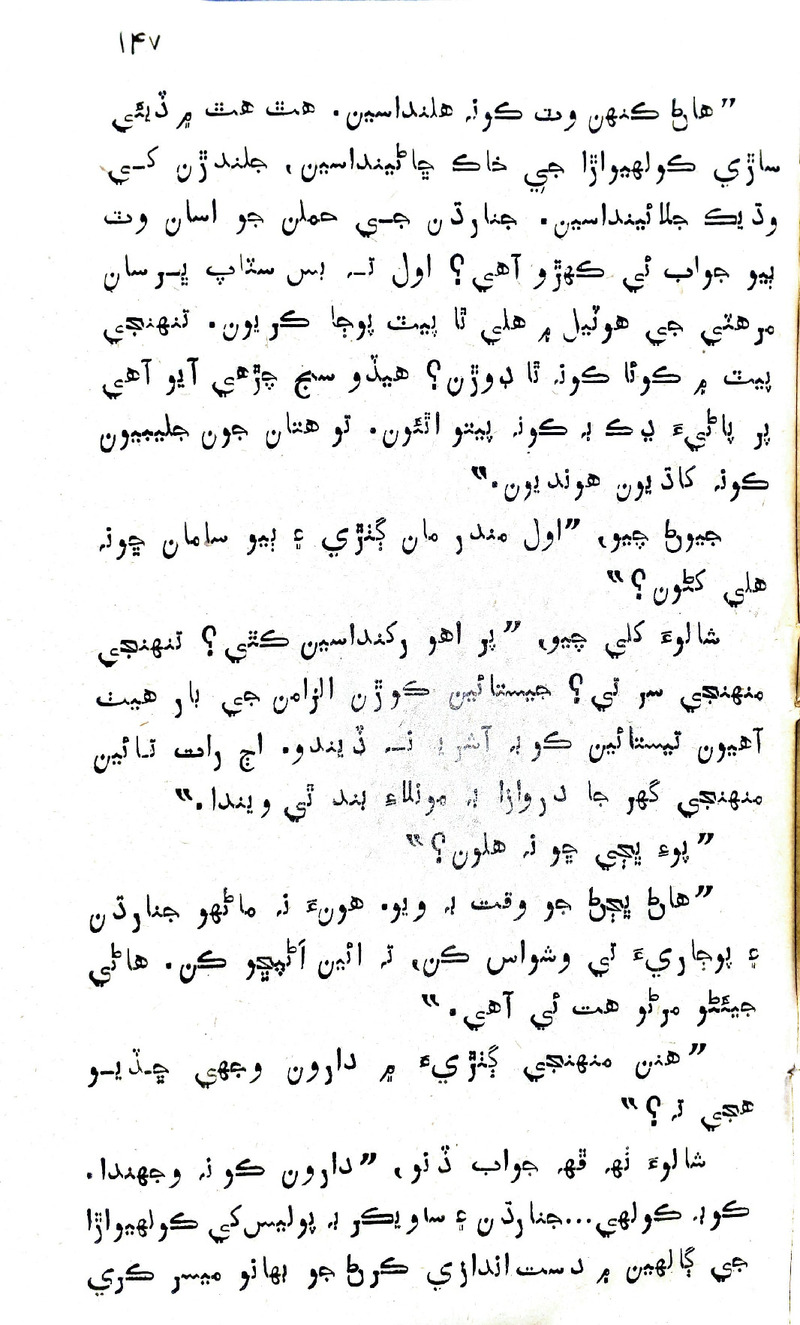 ۱۴۷
”هاڻ ڪنهن وٽ ڪونہ هلنداسين. هٿ هٿ ۾ ڏيئي
ساڙي ڪولهيواڙا جي خاڪ ڇاڻينداسين، جلندڙن کي
وڌيڪ جلائينداسين. جنارڌن جي حملن جو اسان وٽ
ٻيو جواب ئي ڪهڙو آهي؟ اول تہ بس سٽاپ ڀرسان
مرهٽي جي هوٽيل ۾ هلي ٿا پيٽ پوڄا ڪريون. تنهنجي
پيٽ ۾ ڪوئا ڪونہ ٿا ڊوڙن؟ هيڏو سج چڙهي آيو آهي
پر پاڻيءَ ڍڪ بہ ڪونہ پيتو اٿئون. تو هتان جون جليبيون
ڪونہ کاڌيون هونديون.“
جيوڻ چيو، ”اول مندر مان ڳنڙي ۽ ٻيو سامان ڇونہ
هلي کڻون؟“
شالوءَ کلي چيو، ”پر اهو رکنداسين ڪٿي؟ تنهنجي
منهنجي سر تي؟ جيستائين ڪوڙن الزامن جي بار هيٺ
آهيون تيستائين ڪو بہ آشريہ نہ ڏيندو. اڄ رات تائين
منهنجي گهر جا دروازا بہ مونلاءِ بند ٿي ويندا.“
”پوءِ ڀڄي ڇو نہ هلون؟“
”هاڻ ڀڄڻ جو وقت بہ ويو. هونءَ نہ ماڻهو جنارڌن
۽ پوڄاريءَ تي وشواس ڪن، تہ ائين اَڻپڇو ڪن. هاڻي
جيئڻو مرڻو هت ئي آهي.“
”هنن منهنجي ڳنڙيءَ ۾ دارون وجهي ڇڏيو
هجي تہ؟“
شالوءَ ٺهہ ڦهہ جواب ڏنو، ”دارون ڪو نہ وجهندا.
ڪوبہ ڪولهي...جنارڌن ۽ ساويڪر بہ پوليس کي ڪولهيواڙا
جي ڳالهين ۾ دست اندازي ڪرڻ جو بهانو ميسر ڪري